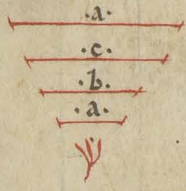 ·a·
·c·
·b·
·a·